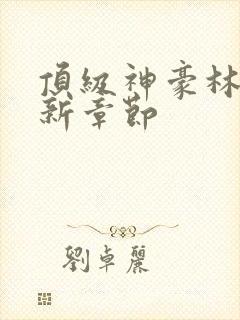 頂級神豪林
新章節
劉卓麗